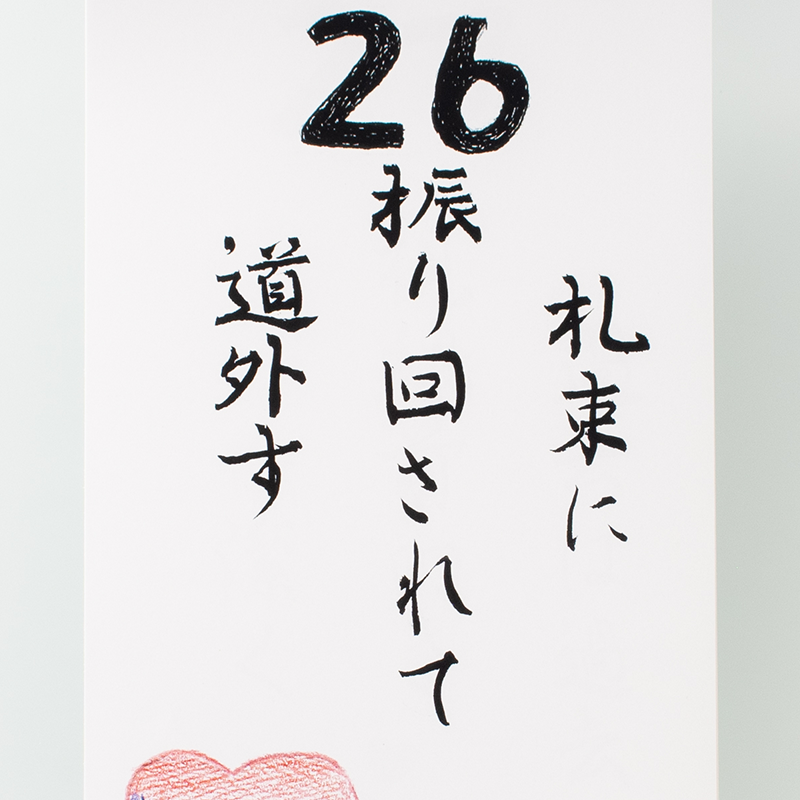 26
札束に
振り回されて
道外す